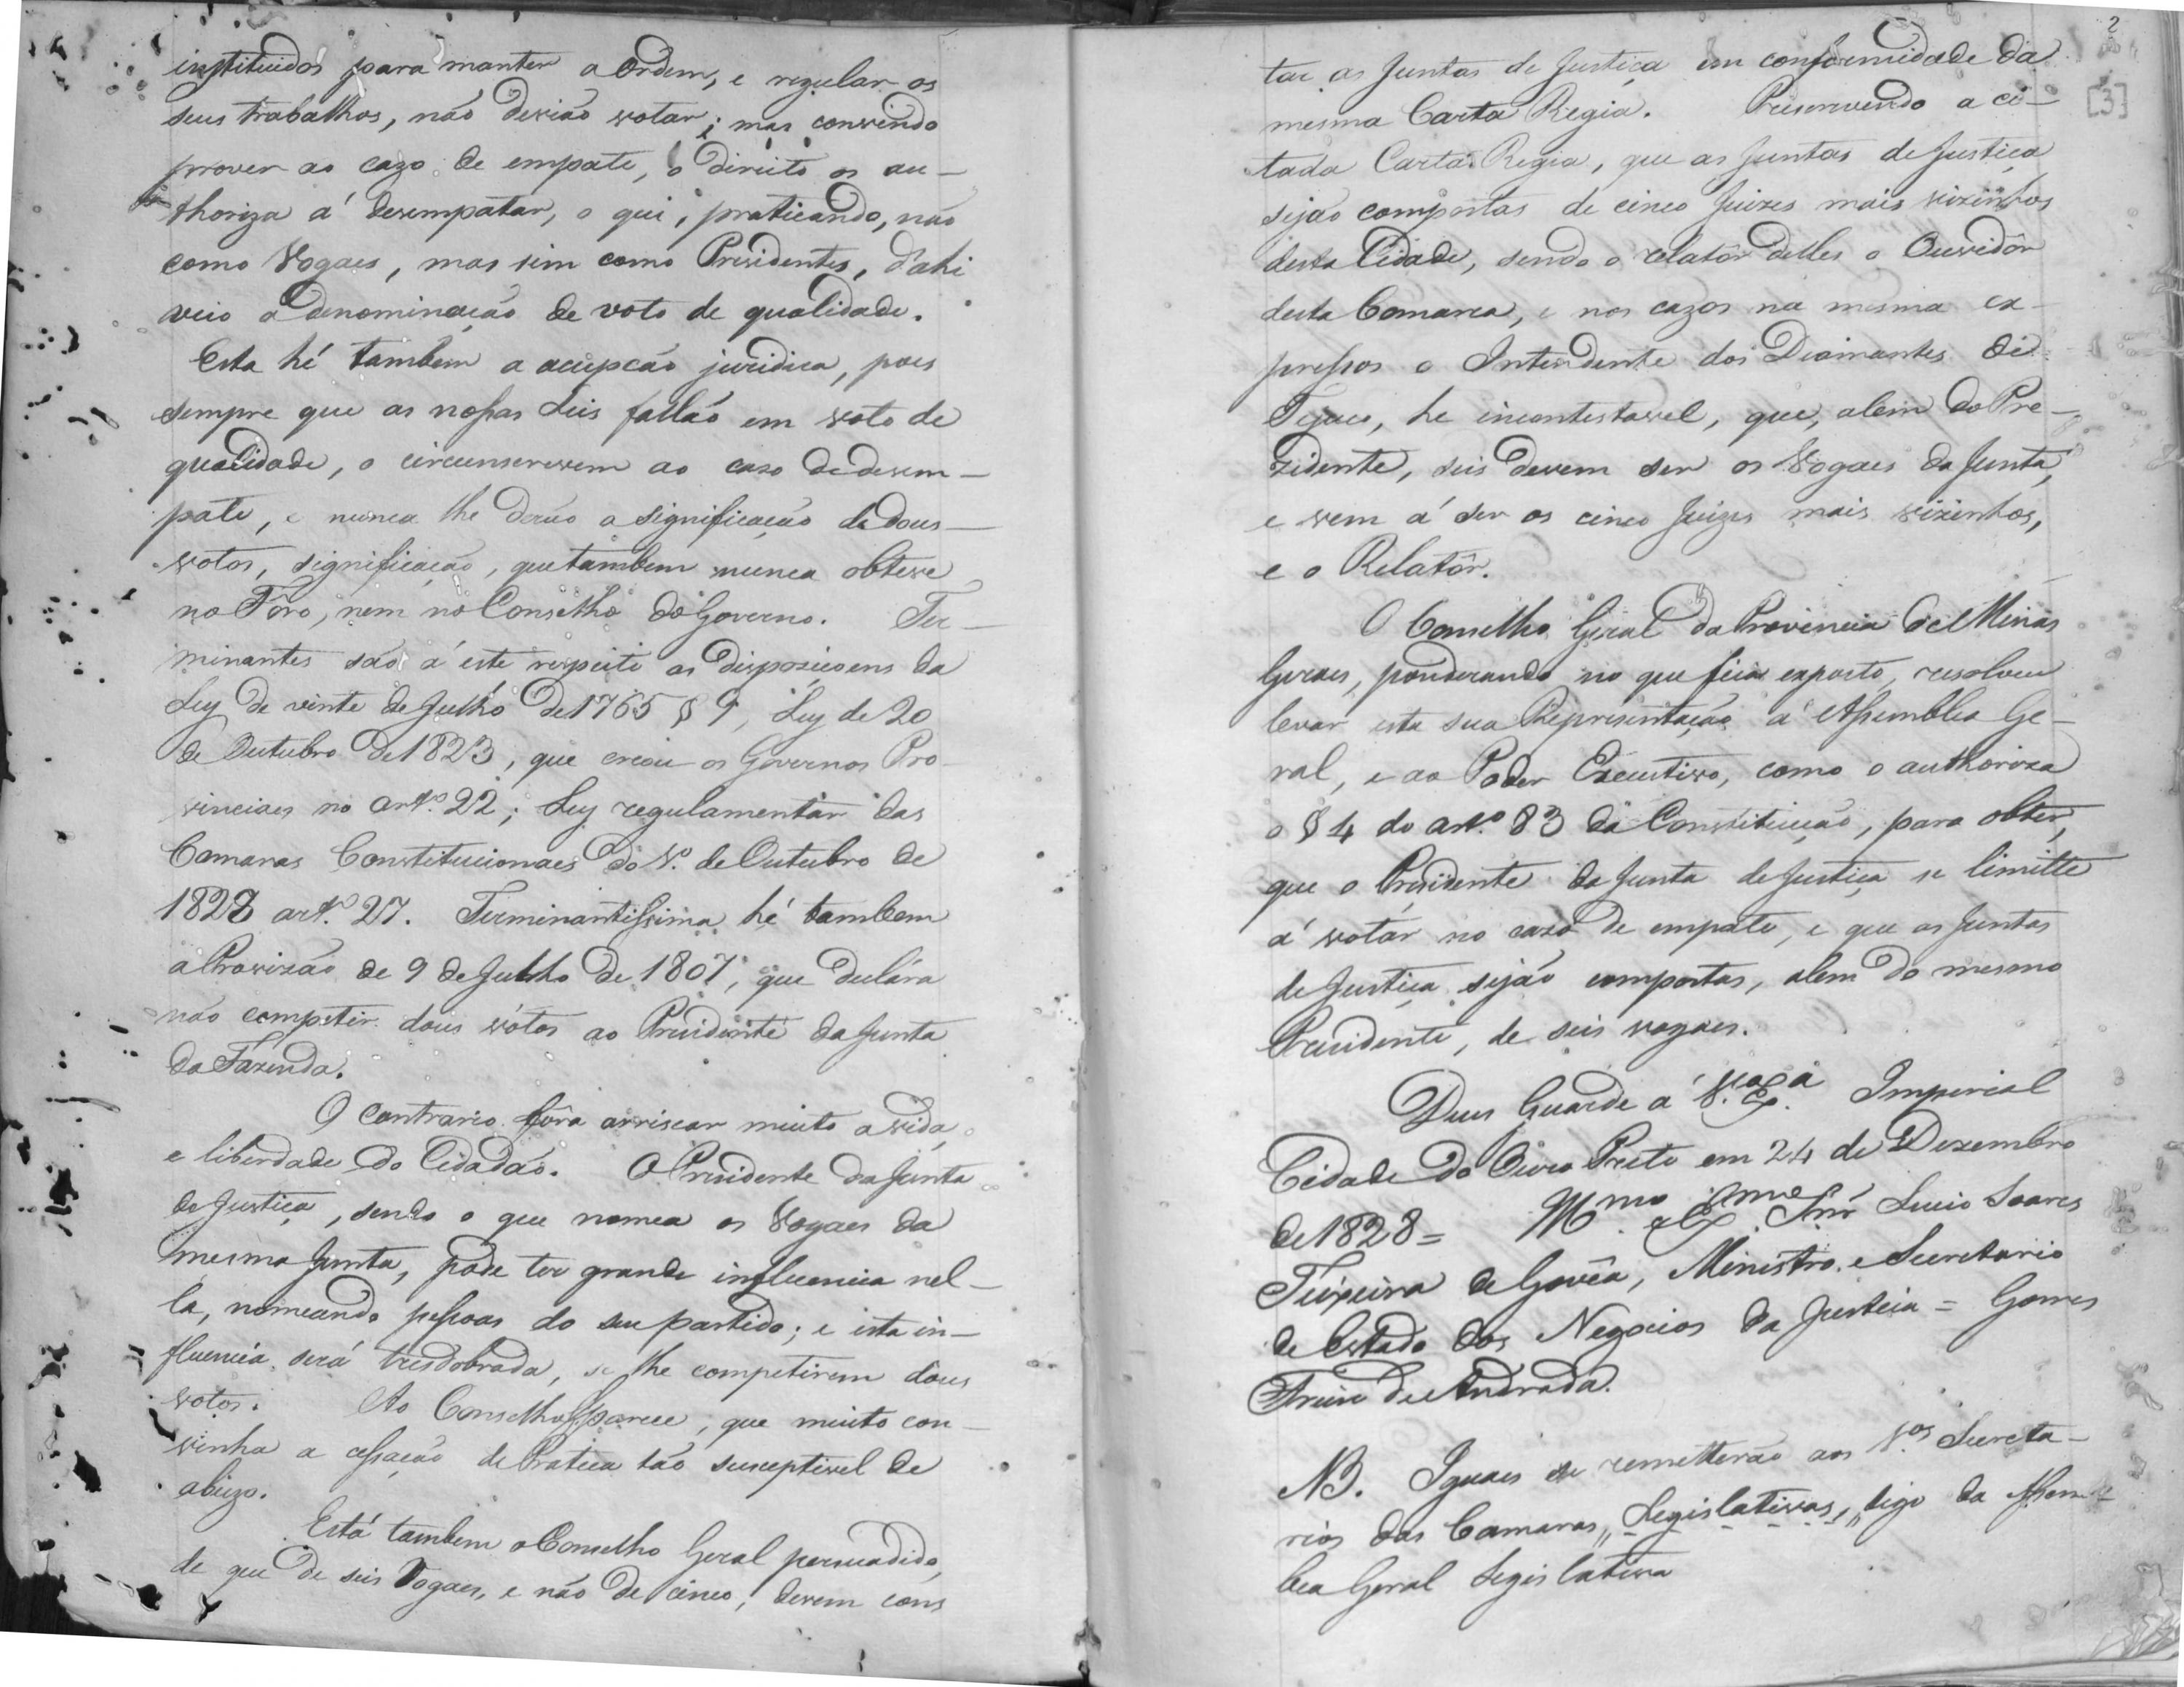 instituidos para manter a Ordem, e regular os
seus trabalhos, não devião votar; mas convindo
prover ao cazo de empate, o direito os au-
thoriza á desempatar, o que, praticando, não
como Vogaes, mas sim como Presidentes, d'ahi
veio a denominação de voto de qualidade.
Esta hé tambem a acepção juridica, pois
sempre que as nossas Leis fallão em voto de
qualidade, o circunscrevem ao caso de desem-
pate, e nunca lhe derão a significação de dous
votos, significação, que tambem nunca obteve
no Fôro, nem no Conselho do Governo. Ter-
minantes são á este respeito as disposiçoens da
Ley de vinte de Julho de 1765 § 9, Ley de 20
de Outubro de 1823, que creou os Governos Pro-
vinciaes no art.º 22; Ley regulamentar das
Camaras Constitucionaes do 1.º de Outubro de
1828 art.º 27. Terminantissima hé tambem
a Provizão de 9 de Julho de 1807, que declára
não competir dous vótos ao Prezidente da Junta
da Fazenda.
O contrario fôra arriscar muito a vida,
e liberdade do Cidadão. O Presidente da Junta
de Justiça, sendo o que nomea os Vogaes da
mesma Junta, pode ter grande influencia nel-
la, nomeando pessoas do seu partido; e esta in-
fluencia será tresdobrada, se lhe competirem dous
votos. Ao Conselho parece, que muito con-
vinha a cessação de Pratica tão susceptivel de
abuzo.
Está tambem o Conselho Geral persuadido,
de que de seis Vogaes, e não de cinco, devem cons
2
[3]
tar as Juntas de Justiça em conformidade da
mesma Carta Regia. Prescrevendo a ci-
tada Carta Regia, que as Juntas de Justiça
sejão compostas de cinco Juizes mais vizinhos
desta Cidade, sendo o relatôr delles o Ouvidôr
desta Comarca, e nos cazos na mesma ex-
pressos o Intendente dos Diamantes do
Tejuco, he incontestavel, que, alem do Pre-
zidente, seis devem ser os Vogaes da Junta,
e vem á ser os cinco Juizes mais vizinhos,
e o Relatôr.
O Conselho Geral da Provincia de Minas
Geraes, ponderando no que fica exposto, resolveu
levar esta sua Representação á Assemblea Ge-
ral, e ao Poder Executivo, como o authoriza
o § 4 do art.º 83 da Constituição, para obter,
que o Presidente da Junta de Justiça se limitte
á votar no caso de empate, e que as Juntas
de Justiça sejão compostas, alem do mesmo
Presidente, de seis vogaes.
Deus Guarde a V. Ex.ª Imperial
Cidade do Ouro Preto em 24 de Dezembro
de 1828 = Illmo. e Exmo. Snr Lucio Soares
Teixeira de Gouvêa, Ministro e Secretario
de Estado dos Negocios da Justiça = Gomes
Freire de Andrada.
NB. Iguaes se remetterão aos 1.os Secreta-
rios das Camaras „Legislativas„ digo da Assem-
blea Geral Legislativa